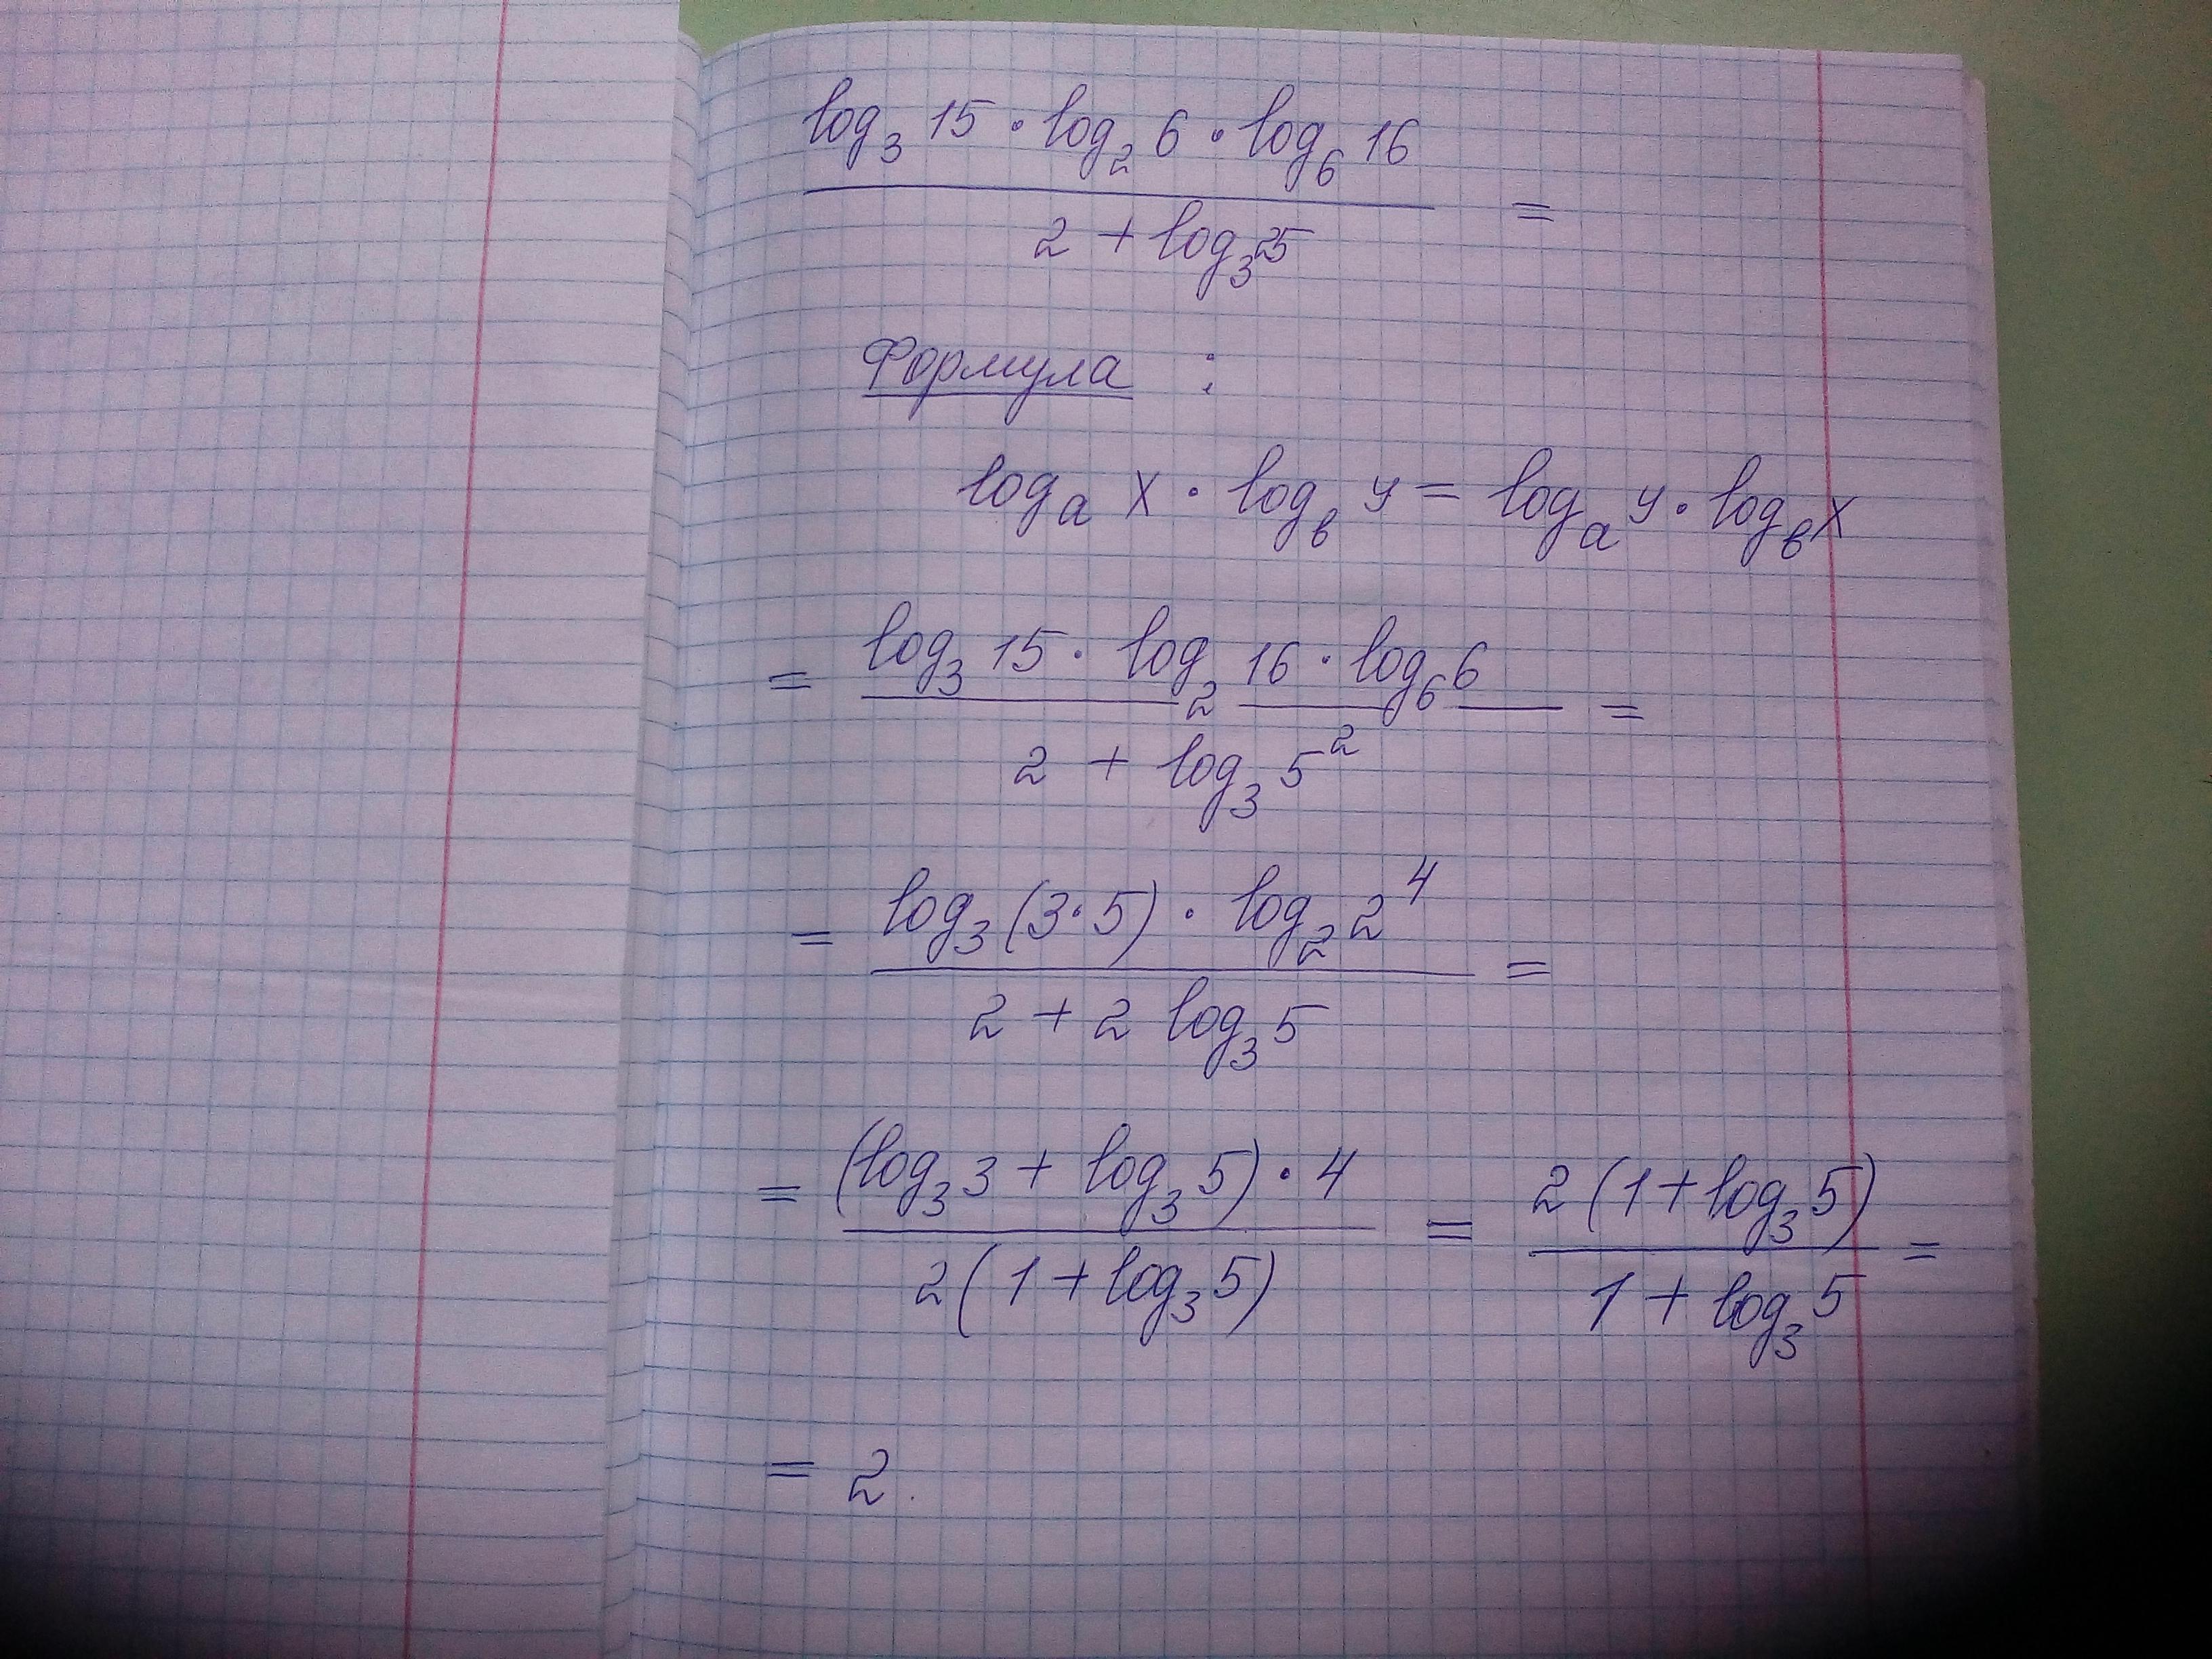 log₃ 15 · log₂ 6 · log₆ 16
2 + log₃ 25 =
Формула :
logₐ x · log_в y = logₐ y · log_в x
= log₃ 15 · log₂ 16 · log₆ 6
2 + log₃ 5² =
= log₃ (3·5) · log₂ 2⁴
2 + 2 log₃ 5 =
= (log₃ 3 + log₃ 5) · 4 = 2 (1 + log₃ 5)
2 (1 + log₃ 5) 1 + log₃ 5 =
= 2.